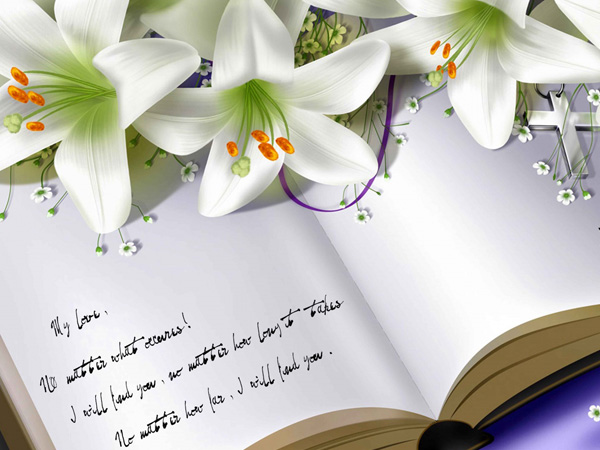 My love,
No matter what occures!
I will find you, no matter how long it takes
No matter how far, I will find you.